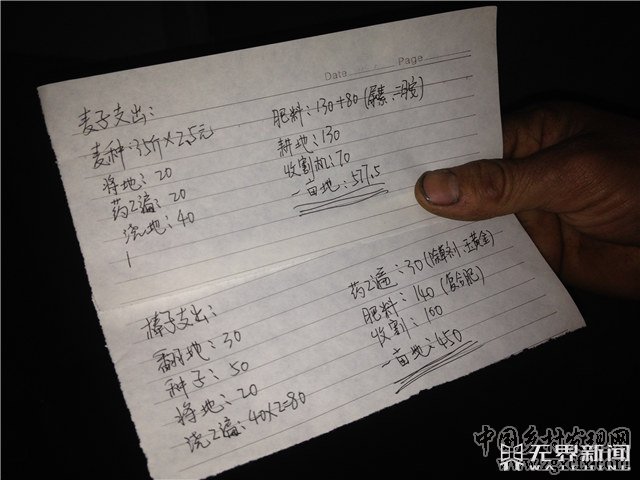 Date
Page
麦子支出：
麦种：35斤×2.5元
将地：20
药2遍：20
浇地：40
肥料：130+80（尿素、二胺）
耕地：130
收割机：70
一亩地：517.5
棒子支出：
翻地：30
种子：50
将地：20
浇2遍：40×2=80
药2遍：30（除草剂、玉黄金）
肥料：140（复合肥）
收割：100
一亩地：450
中国乡村发现网
无界新闻
WATCHING